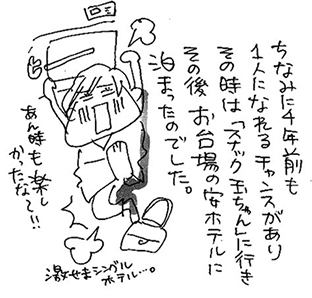 ちなみに4年前も
1人になれるチャンスがあり
その時は「スナック玉ちゃん」に行き
その後 お台場の安ホテルに
泊まったのでした。
あん時も楽し
かったな~!!
激せまシングル
ホテル…。